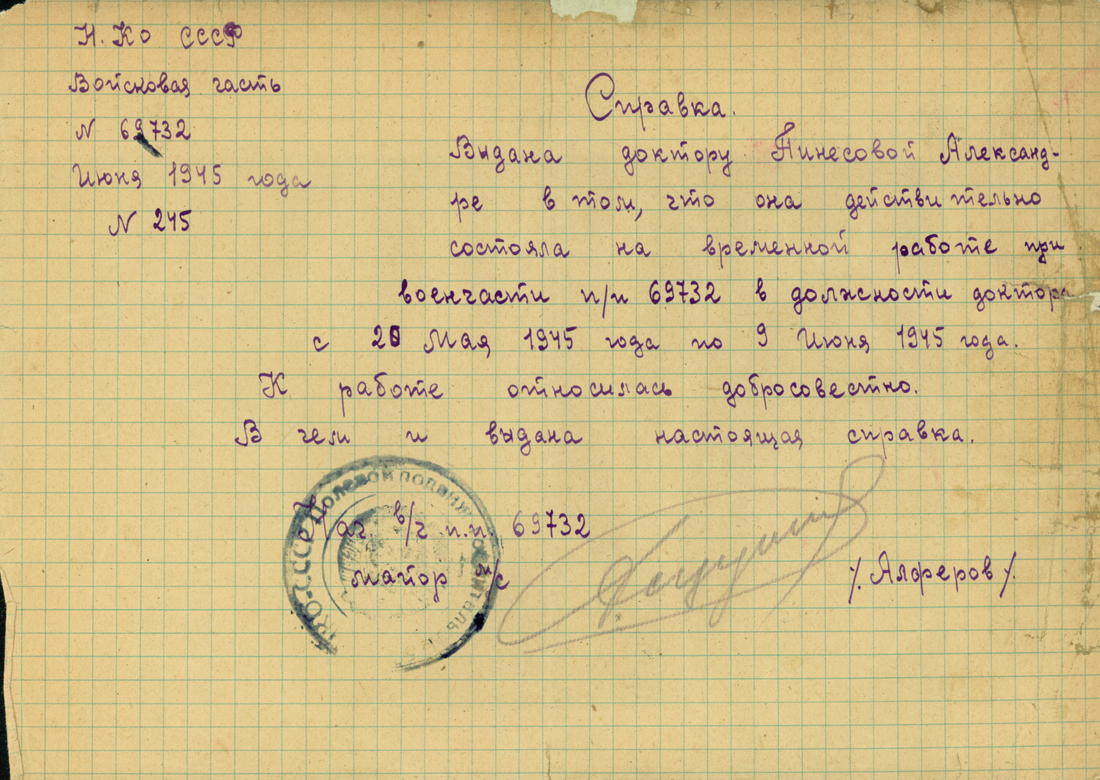 Н.Ко СССР
Войсковая часть
N 69732
Июня 1945 года
N 245
Справка.
Выдана доктору Пинесовой Александ-
ре в том, что она действительно
состояла на временной работе при
военчасти п/п 69732 в должности доктора
с 20 Мая 1945 года по 9 Июня 1945 года.
К работе относилась добросовестно.
В чем и выдана настоящая справка.
в/ч п.п. 69732
майор м/с
/. Алферов /.
НКО-СССР Полевой подвижной госпиталь